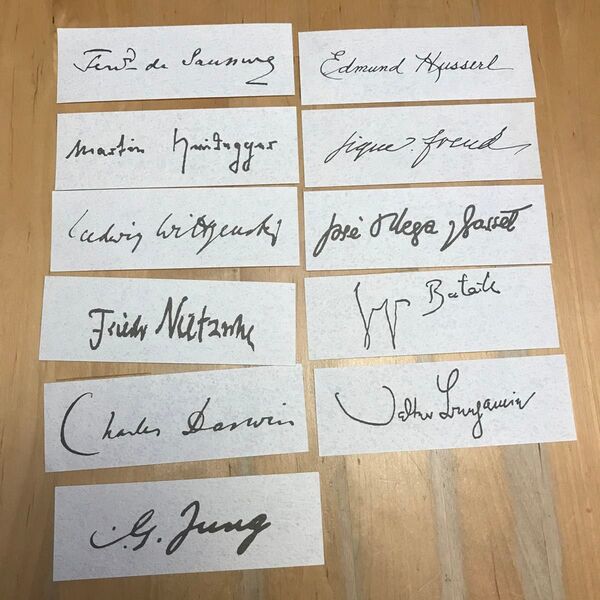 Ferd de Saussure
Edmund Husserl
Martin Heidegger
Sigm. Freud
Ludwig Wittgenstein
José Ortega y Gasset
Friedr Nietzsche
Bataille
Charles Darwin
Walter Benjamin
C.G. Jung